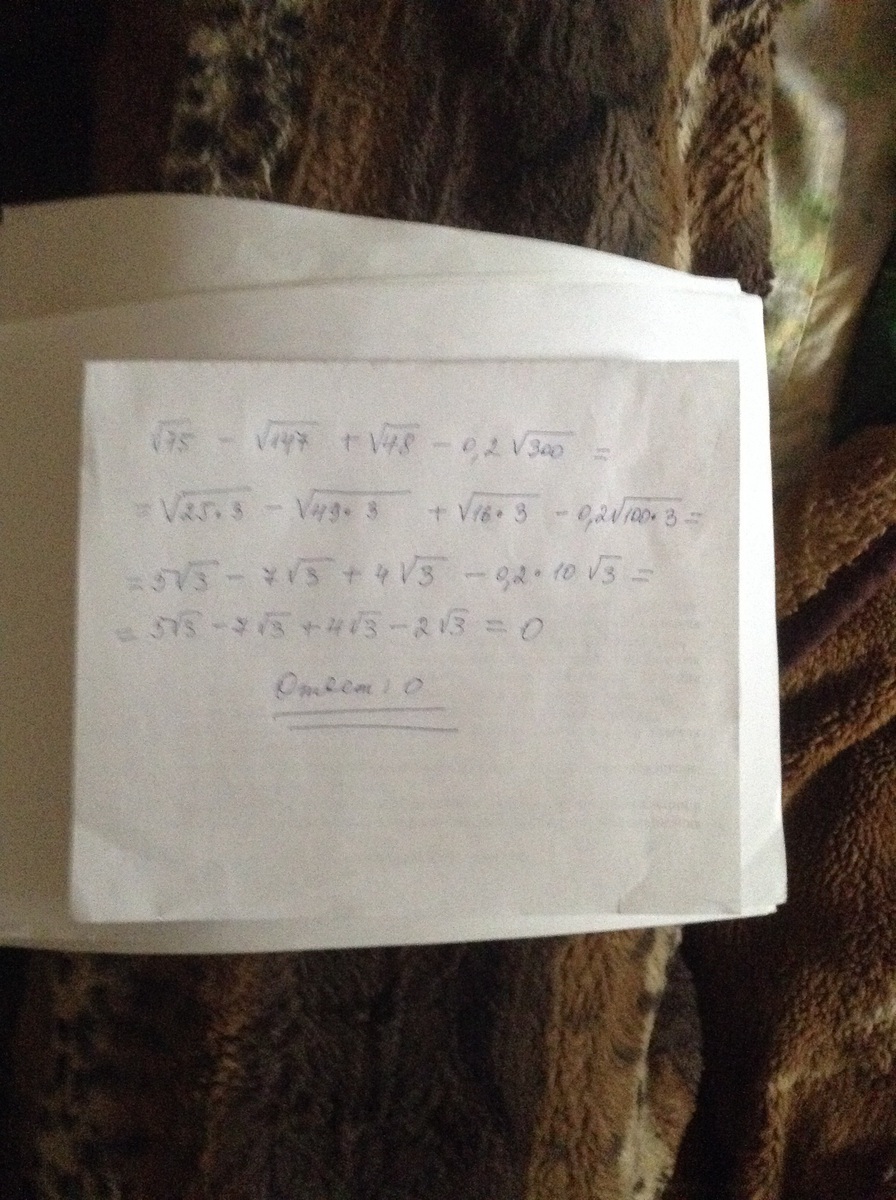 √75 - √147 + √48 - 0,2 √300 =
= √25·3 - √49·3 + √16·3 - 0,2√100·3 =
= 5√3 - 7√3 + 4√3 - 0,2·10 √3 =
= 5√3 - 7√3 + 4√3 - 2√3 = 0
Ответ: 0